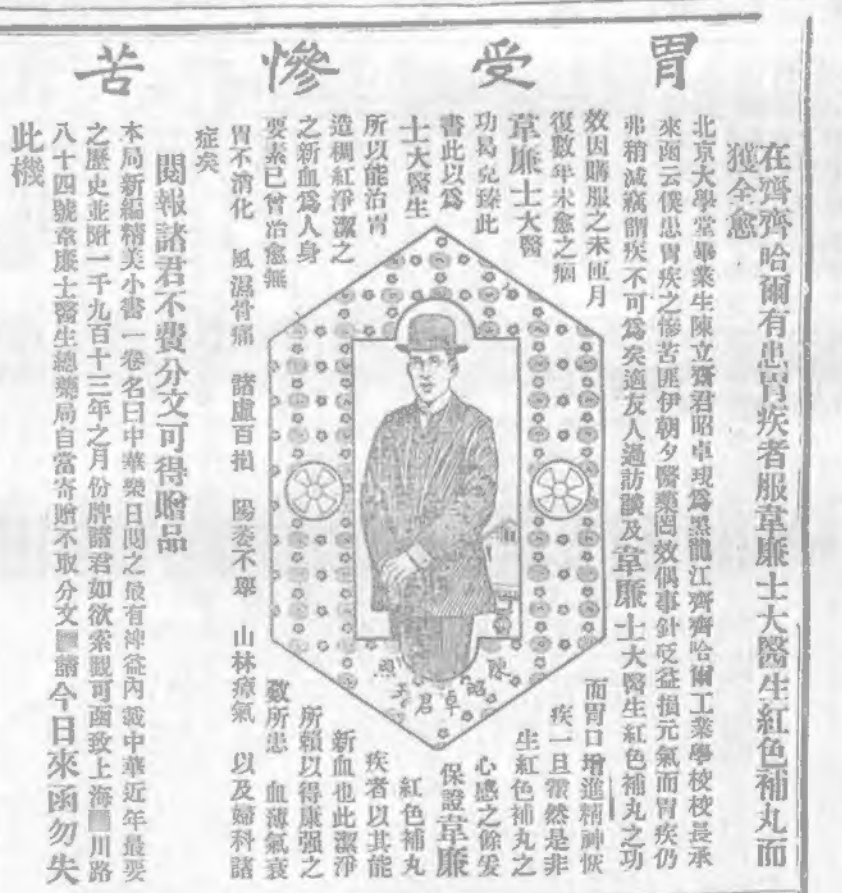 胃受慘苦
在齊齊哈爾有患胃疾者服韋廉士大醫生紅色補丸而
獲全愈
北京大學堂畢業生陳立齋君昭卓現爲黑龍江齊齊哈爾工業學校校長承
來函云僕患胃疾之慘苦匪伊朝夕醫藥罔效偶事針砭益損元氣而胃疾仍
弗稍減竊謂疾不可爲矣適友人過訪談及韋廉士大醫生紅色補丸之功
效因購服之未匝月 而胃口增進精神恢
復數年未愈之痼 疾一旦霍然是非
韋廉士大醫 生紅色補丸之
功曷克臻此 心感之餘爰
書此以爲 保證韋廉
士大醫生 紅色補丸
所以能治胃 疾者以其能
造稠紅淨潔之 新血也此潔淨
之新血爲人身 所賴以得康强之
要素已曾治愈無 數所患 血薄氣衰
胃不消化 風濕骨痛 諸虛百損 陽委不舉 山林瘴氣 以及婦科諸
症矣
陳昭卓君玉照
閱報諸君不費分文可得贈品
本局新編精美小書一卷名曰中華榮日閱之最有裨益內載中華近年最要
之歷史並附一千九百十三年之月份牌諸君如欲索觀可函致上海川路
八十四號韋廉士醫生總藥局自當寄贈不取分文請今日來函勿失
此機